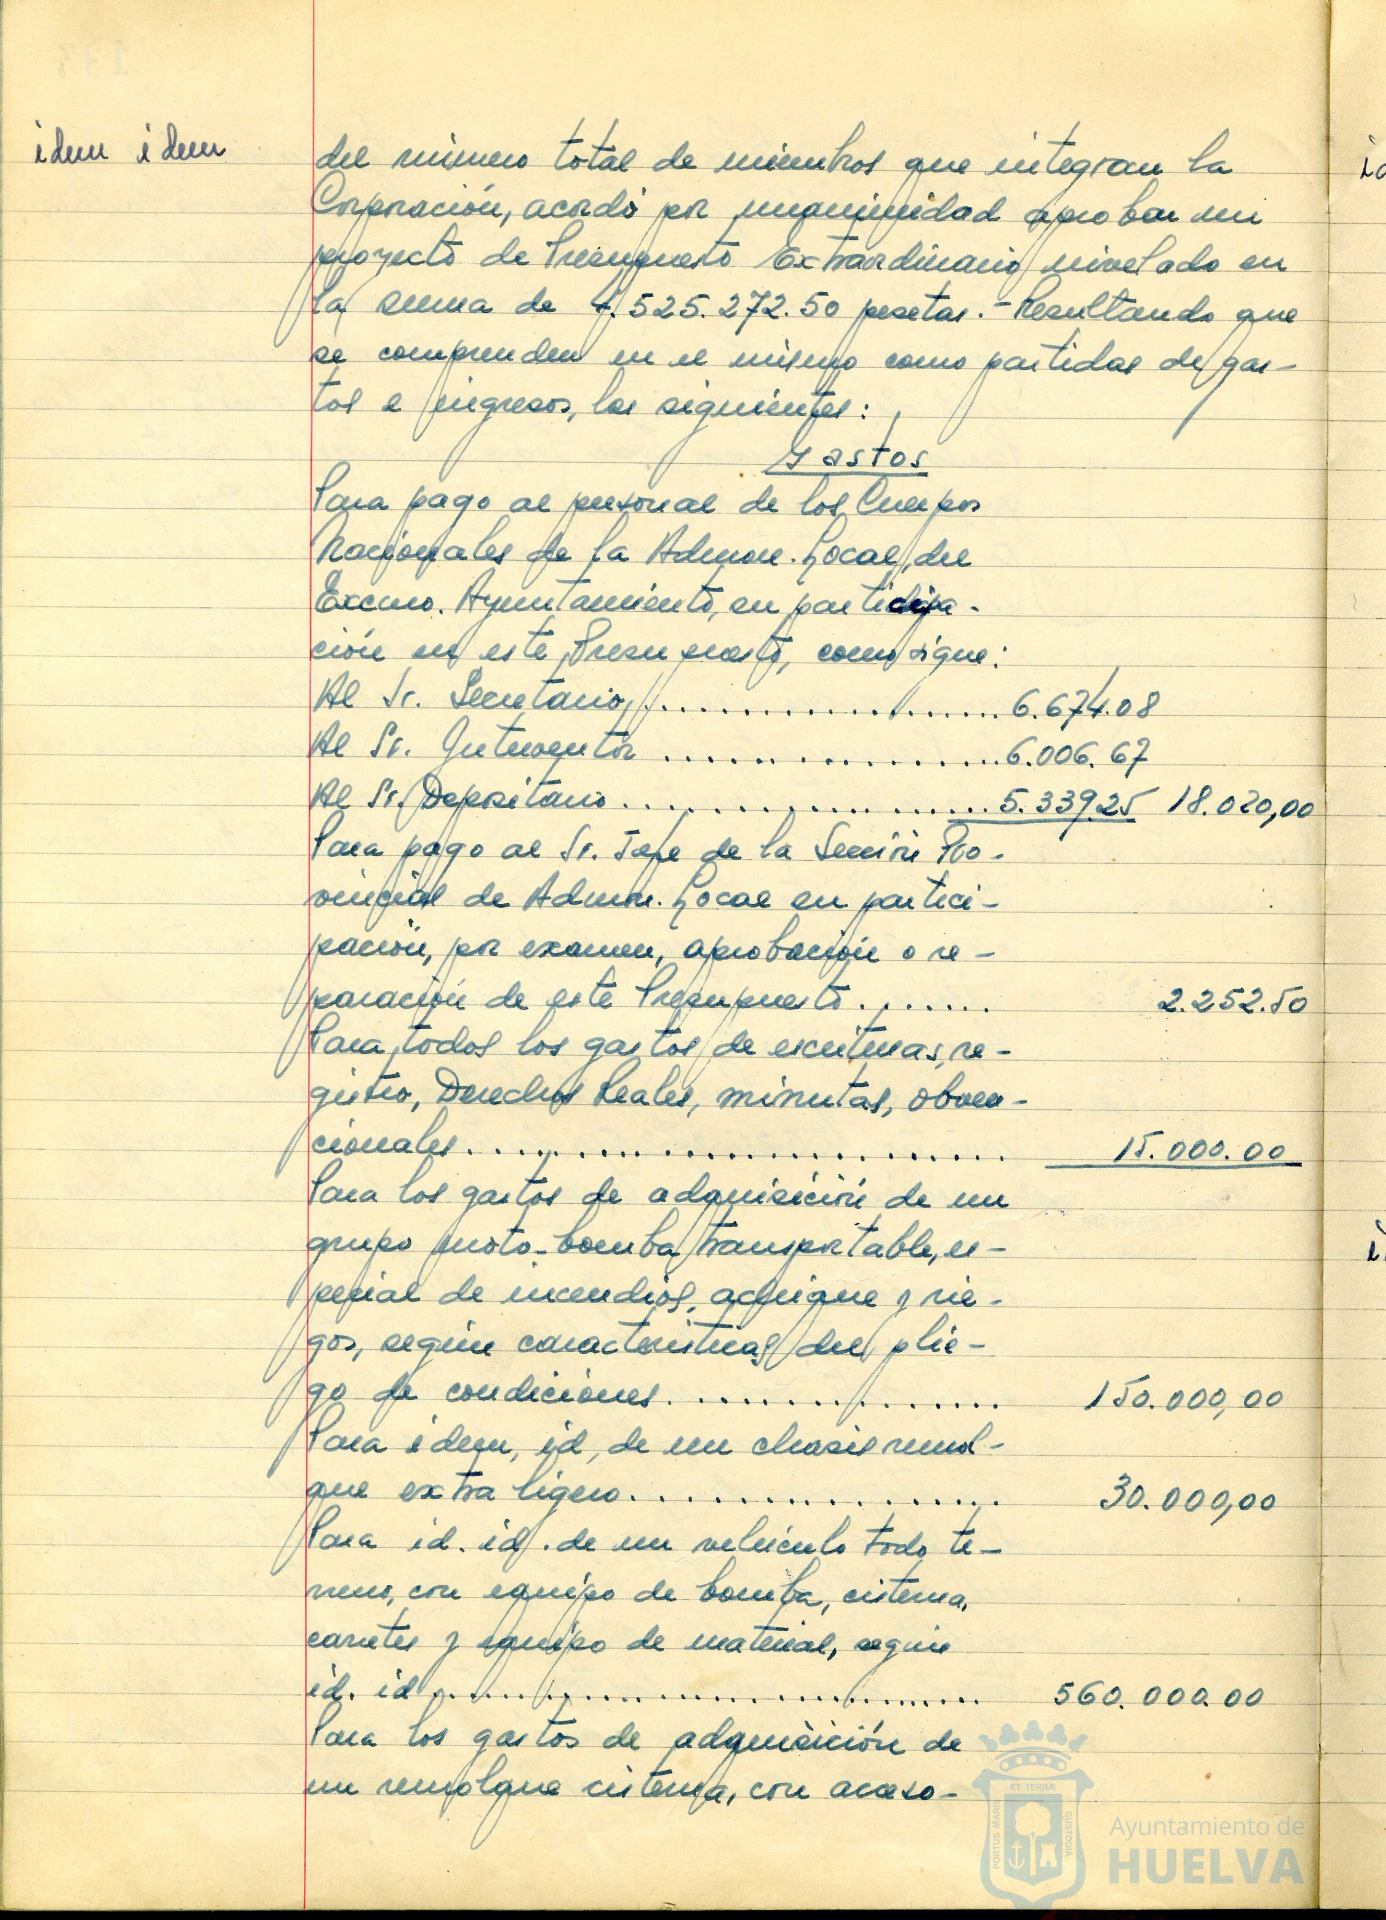 idem idem
del número total de miembros que integran la
Corporación, acordó por unanimidad aprobar un
proyecto de Presupuesto Extraordinario nivelado en
la suma de 1.525.272.50 pesetas.- Resultando que
se comprenden en el mismo como partidas de gas-
tos e ingresos, las siguientes:
Gastos
Para pago al personal de los Cuerpos
Nacionales de la Admon. Local, del
Excmo. Ayuntamiento, en participa-
ción en este Presupuesto, como sigue:
Al Sr. Secretario, .................. 6.674.08
Al Sr. Interventor ................ 6.006.67
Al Sr. Depositario .................. 5.339.25 18.020,00
Para pago al Sr. Jefe de la Sección Pro-
vincial de Admon. Local en partici-
pación, por examen, aprobación o re-
paración de este Presupuesto ....... 2.252.50
Para todos los gastos de escrituras, re-
gistro, Derechos Reales, minutas, obven-
cionales .......................... 15.000.00
Para los gastos de adquisición de un
grupo moto-bomba transportable, es-
pecial de incendios, achique y rie-
gos, según características del plie-
go de condiciones ............... 150.000,00
Para idem, id, de un chasis remol-
que extra ligero .................. 30.000,00
Para id. id. de un vehículo todo te-
rreno, con equipo de bomba, cisterna,
carretes y equipo de material, según
id. id ............................ 560.000.00
Para los gastos de adquisición de
un remolque cisterna, con acceso-
ET TERRÆ
PORTUS MARIS
CUSTODIA
Ayuntamiento de
HUELVA